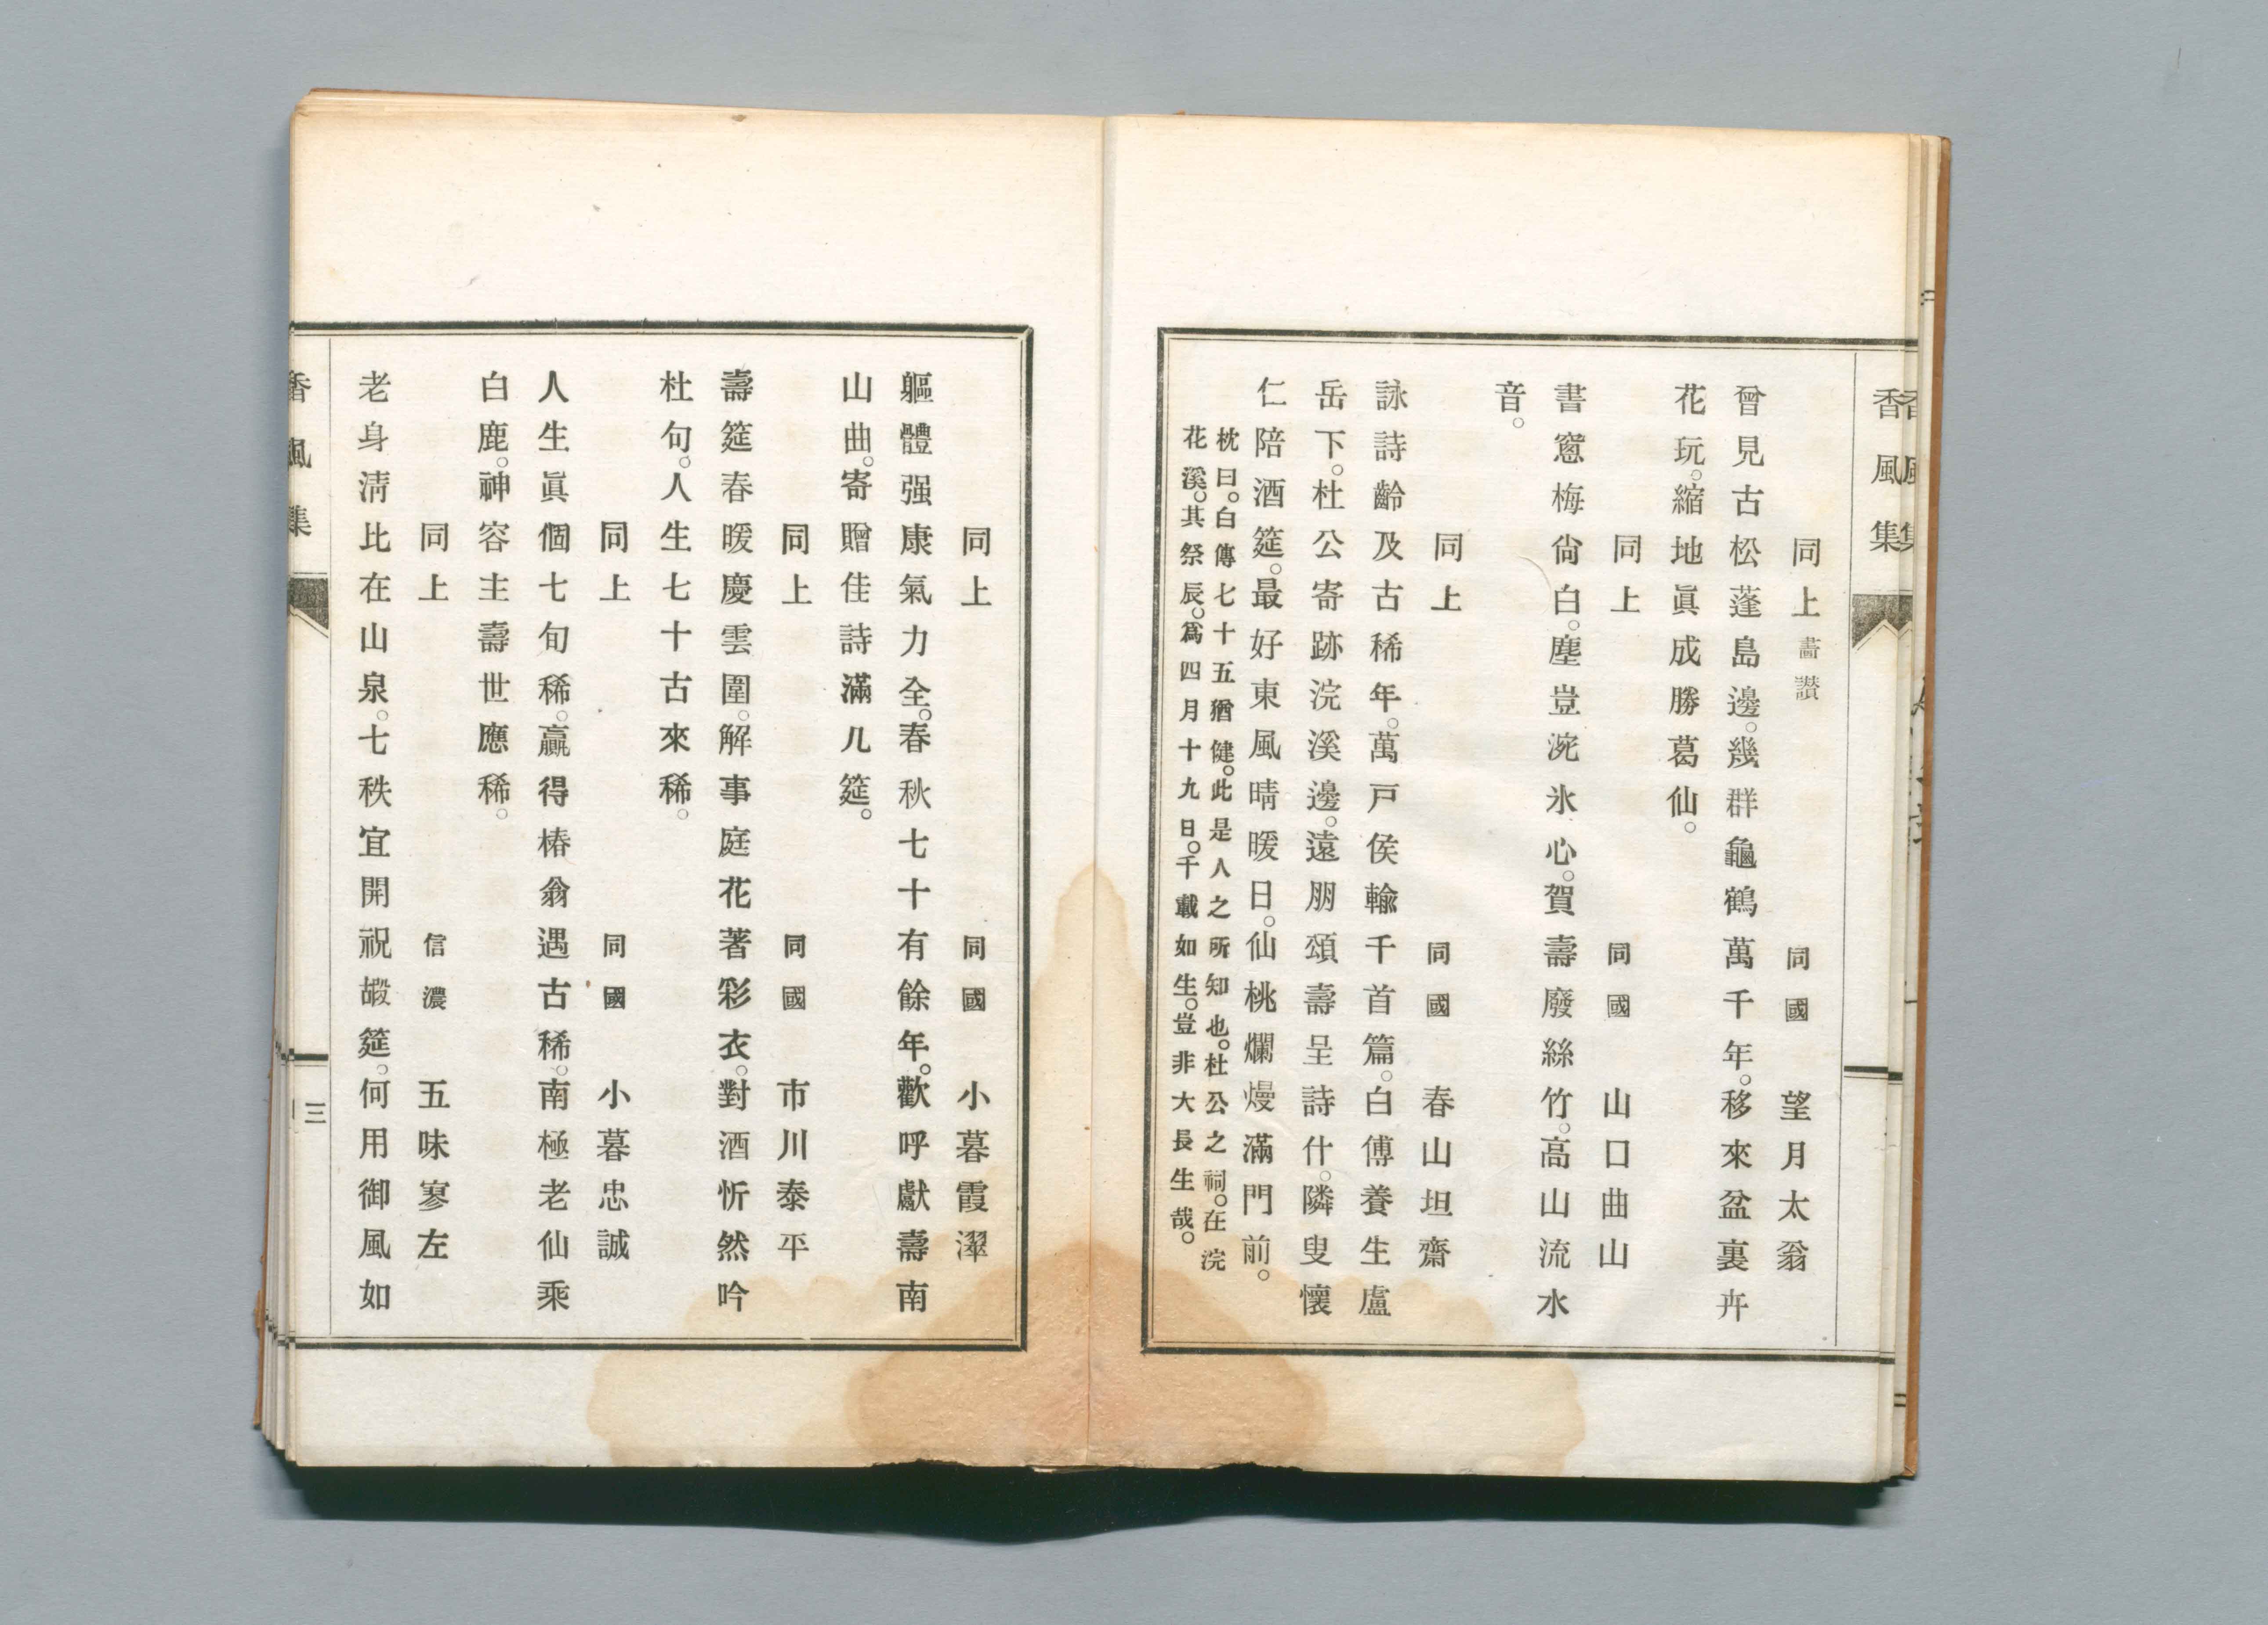 香風集
同上 畫讚 同國 望月太翁
曾見古松蓬島邊。幾群龜鶴萬千年。移來盆裏卉
花玩。縮地眞成勝葛仙。
同上 同國 山口曲山
書窻梅尙白。塵豈涴氷心。賀壽廢絲竹。高山流水
音。
同上 同國 春山坦齋
詠詩齡及古稀年。萬戸侯輸千首篇。白傅養生盧
岳下。杜公寄跡浣溪邊。遠朋頌壽呈詩什。隣叟懷
仁陪酒筵。最好東風晴暖日。仙桃爛熳滿門前。
枕曰。白傳七十五猶健。此是人之所知也。杜公之祠。在浣
花溪。其祭辰。爲四月十九日。千載如生。豈非大長生哉。
同上 同國 小暮霞濢
軀體强康氣力全。春秋七十有餘年。歡呼獻壽南
山曲。寄贈佳詩滿几筵。
同上 同國 市川泰平
壽筵春暖慶雲圍。解事庭花著彩衣。對酒忻然吟
杜句。人生七十古來稀。
同上 同國 小暮忠誠
人生眞個七旬稀。贏得椿翁遇古稀。南極老仙乘
白鹿。神容主壽世應稀。
同上 信濃 五味寥左
老身淸比在山泉。七秩宜開祝嘏筵。何用御風如
香風集
三